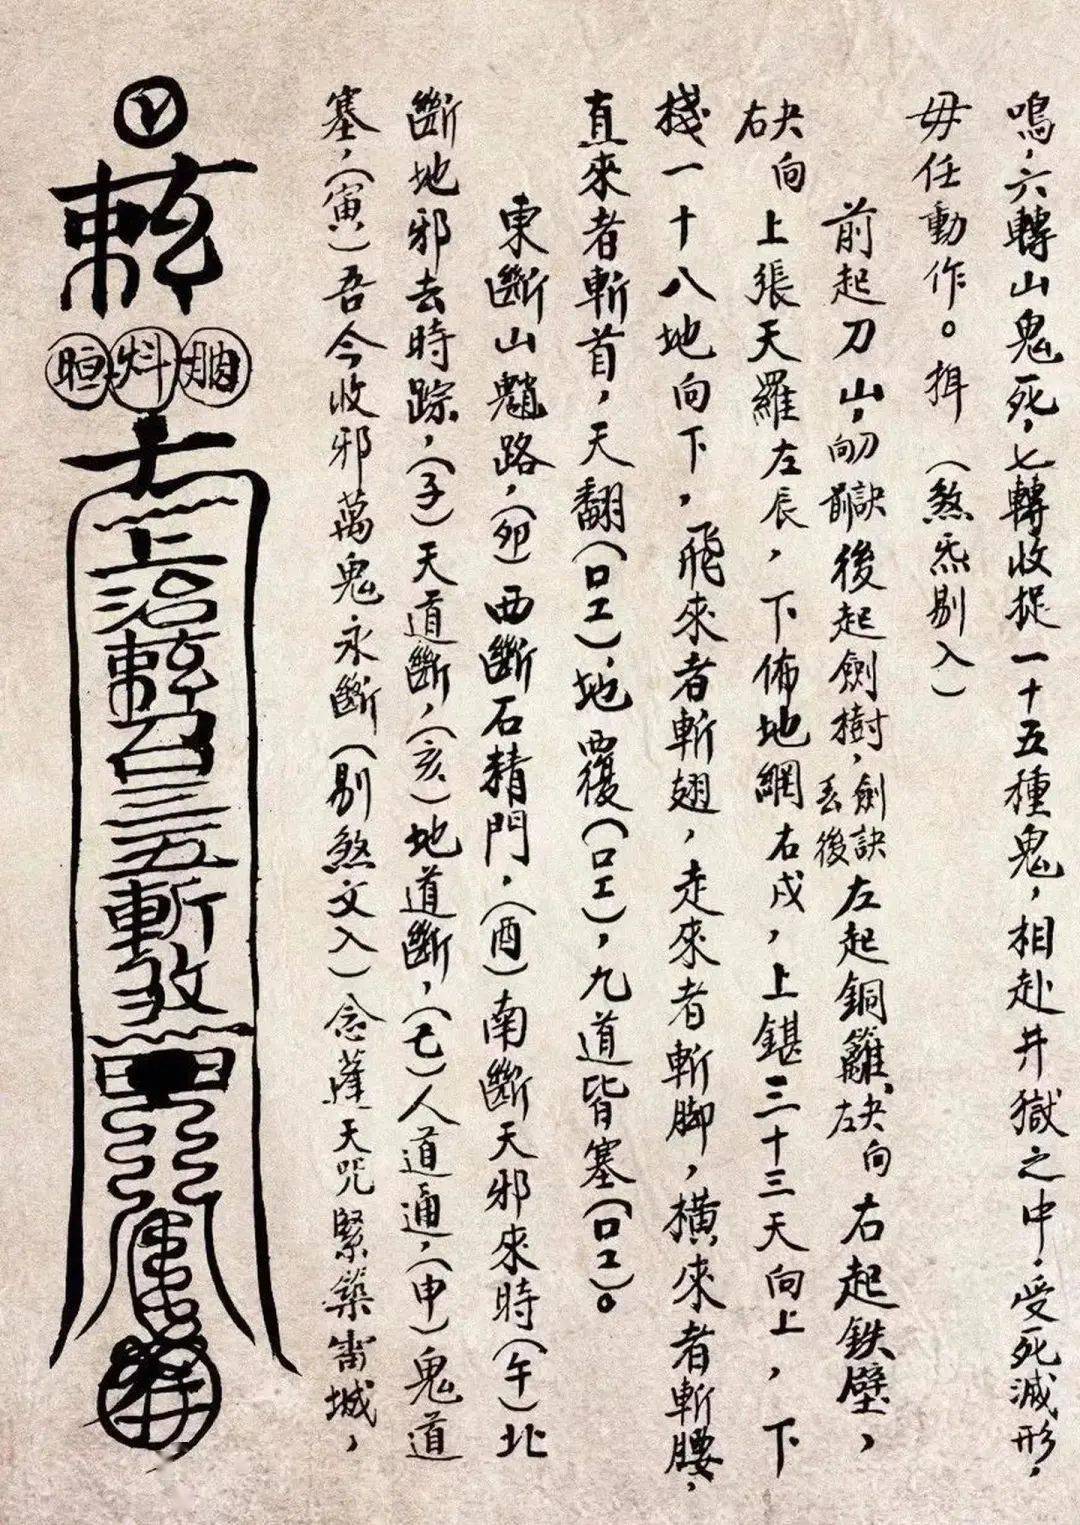 鳴，六轉山鬼死，七轉收捉一十五種鬼，相赴井獄之中，受死滅形，
毋任動作。揖（煞炁剔入）
前起刀山，刀訣向前後起劍樹，劍訣丢後左起銅籬，左决向右起鉄壁，
右决向上張天羅左辰，下佈地網右戌，上鍖三十三天向上，下
棧一十八地向下，飛來者斬翅，走來者斬脚，橫來者斬腰，
直來者斬首，天翻（口工），地覆（口工），九道皆塞（口工）。
東斷山魈路，（卯）西斷石精門，（酉）南斷天邪來時（午）北
斷地邪去時踪，（子）天道斷，（亥）地道斷，（巳）人道通，（申）鬼道
塞，（寅）吾今收邪萬鬼永斷（剔煞文入）念蓬天咒緊築甯城，
敕
上治敕召三五斬